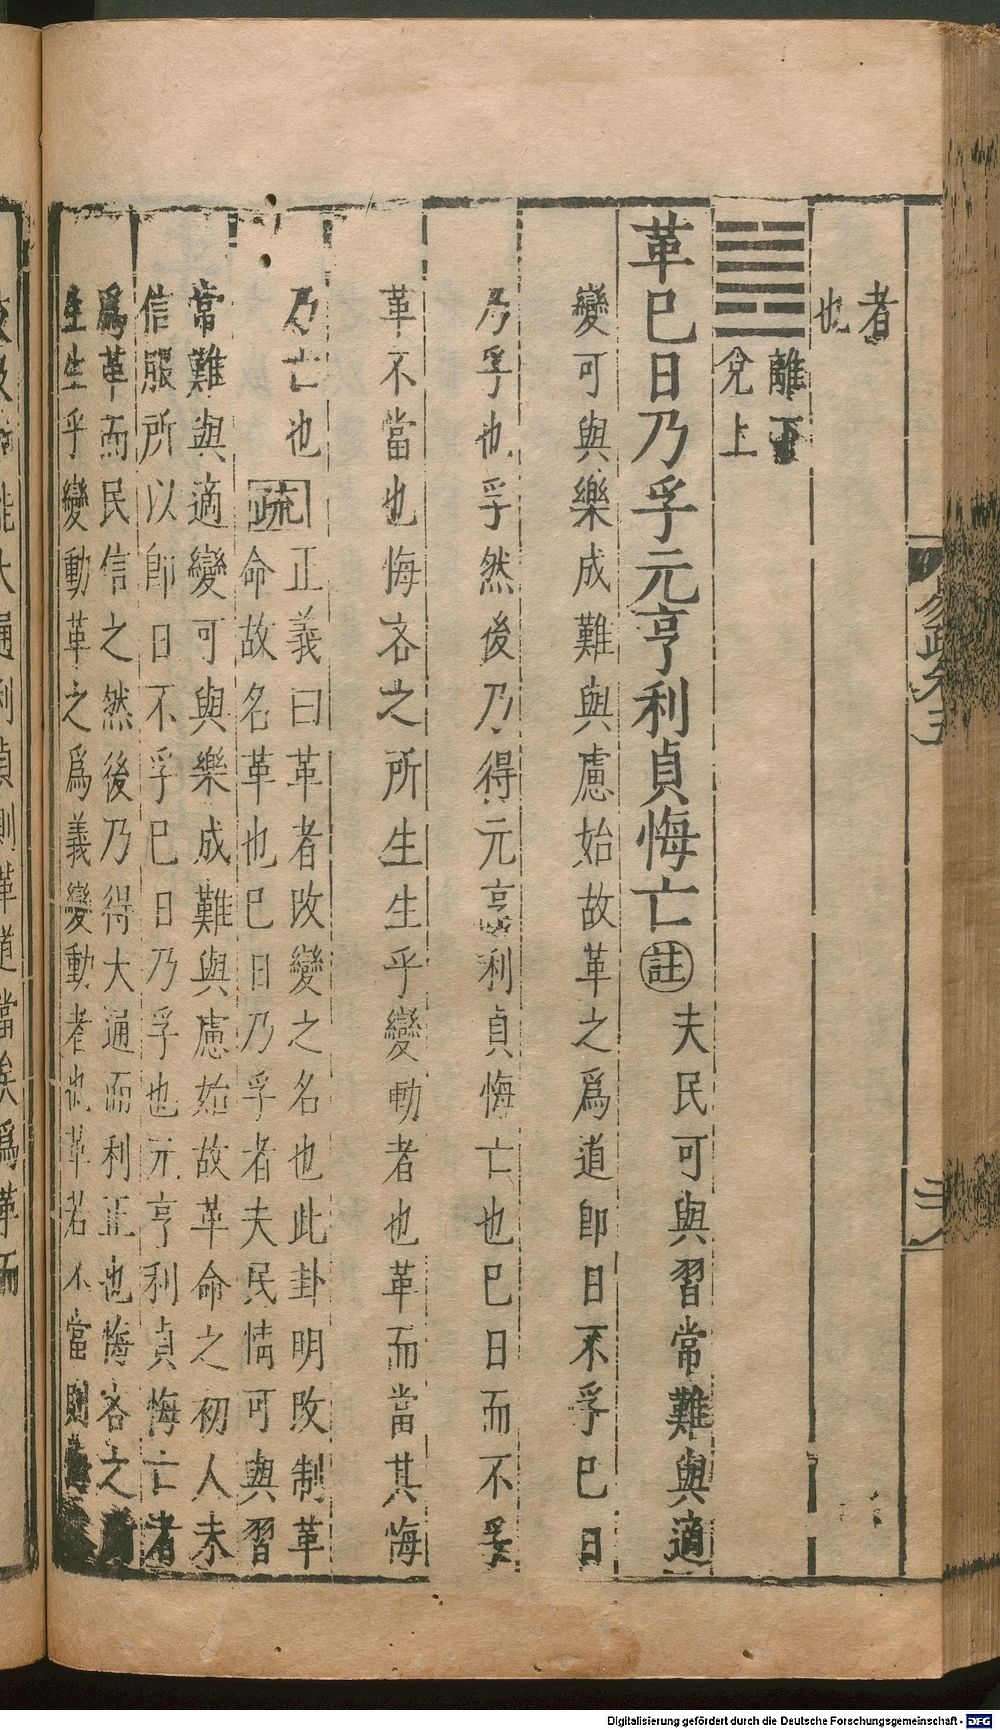 者
也
離下
兌上
革巳日乃孚元亨利貞悔亡註夫民可與習常難與適
變可與樂成難與慮始故革之爲道卽日不孚巳日
乃孚也孚然後乃得元亨利貞悔亡也巳日而不孚
革不當也悔吝之所生生乎變動者也革而當其悔
乃亡也疏正義曰革者改變之名也此卦明改制革
命故名革也巳日乃孚者夫民情可與習
常難與適變可與樂成難與慮始故革命之初人未
信服所以卽日不孚巳日乃孚也元亨利貞悔亡者
爲革而民信之然後乃得大通而利正也悔吝之所
生生乎變動革之爲義變動者也革若不當則
能大通利貞則革道當矣爲革而
易疏卷五
二八
Digitalisierung gefördert durch die Deutsche Forschungsgemeinschaft - DFG